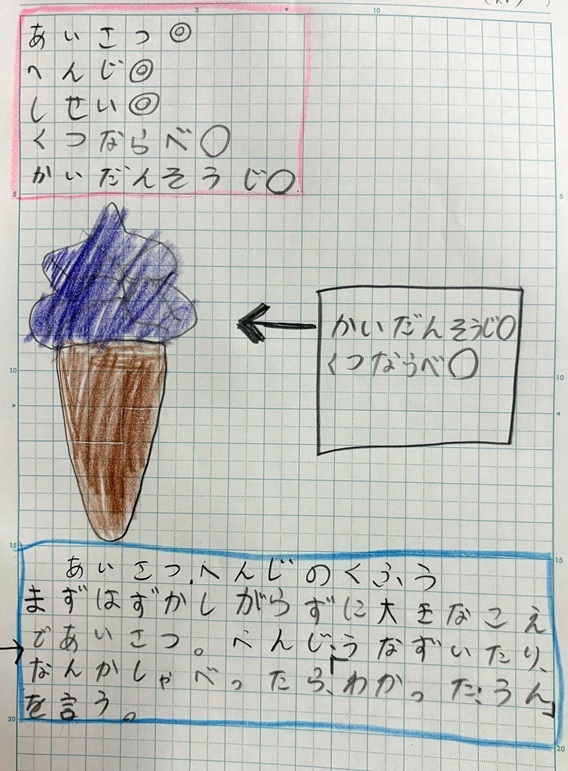 あいさつ◎
へんじ◎
しせい◎
くつならべ○
かいだんそうじ○
かいだんそうじ○
くつならべ○
あいさつ、へんじのくふう
まずはずかしがらずに大きなこえ
であいさつ。へんじ、うなずいたり、
なんかしゃべったら、「わかった、うん」
を言う。